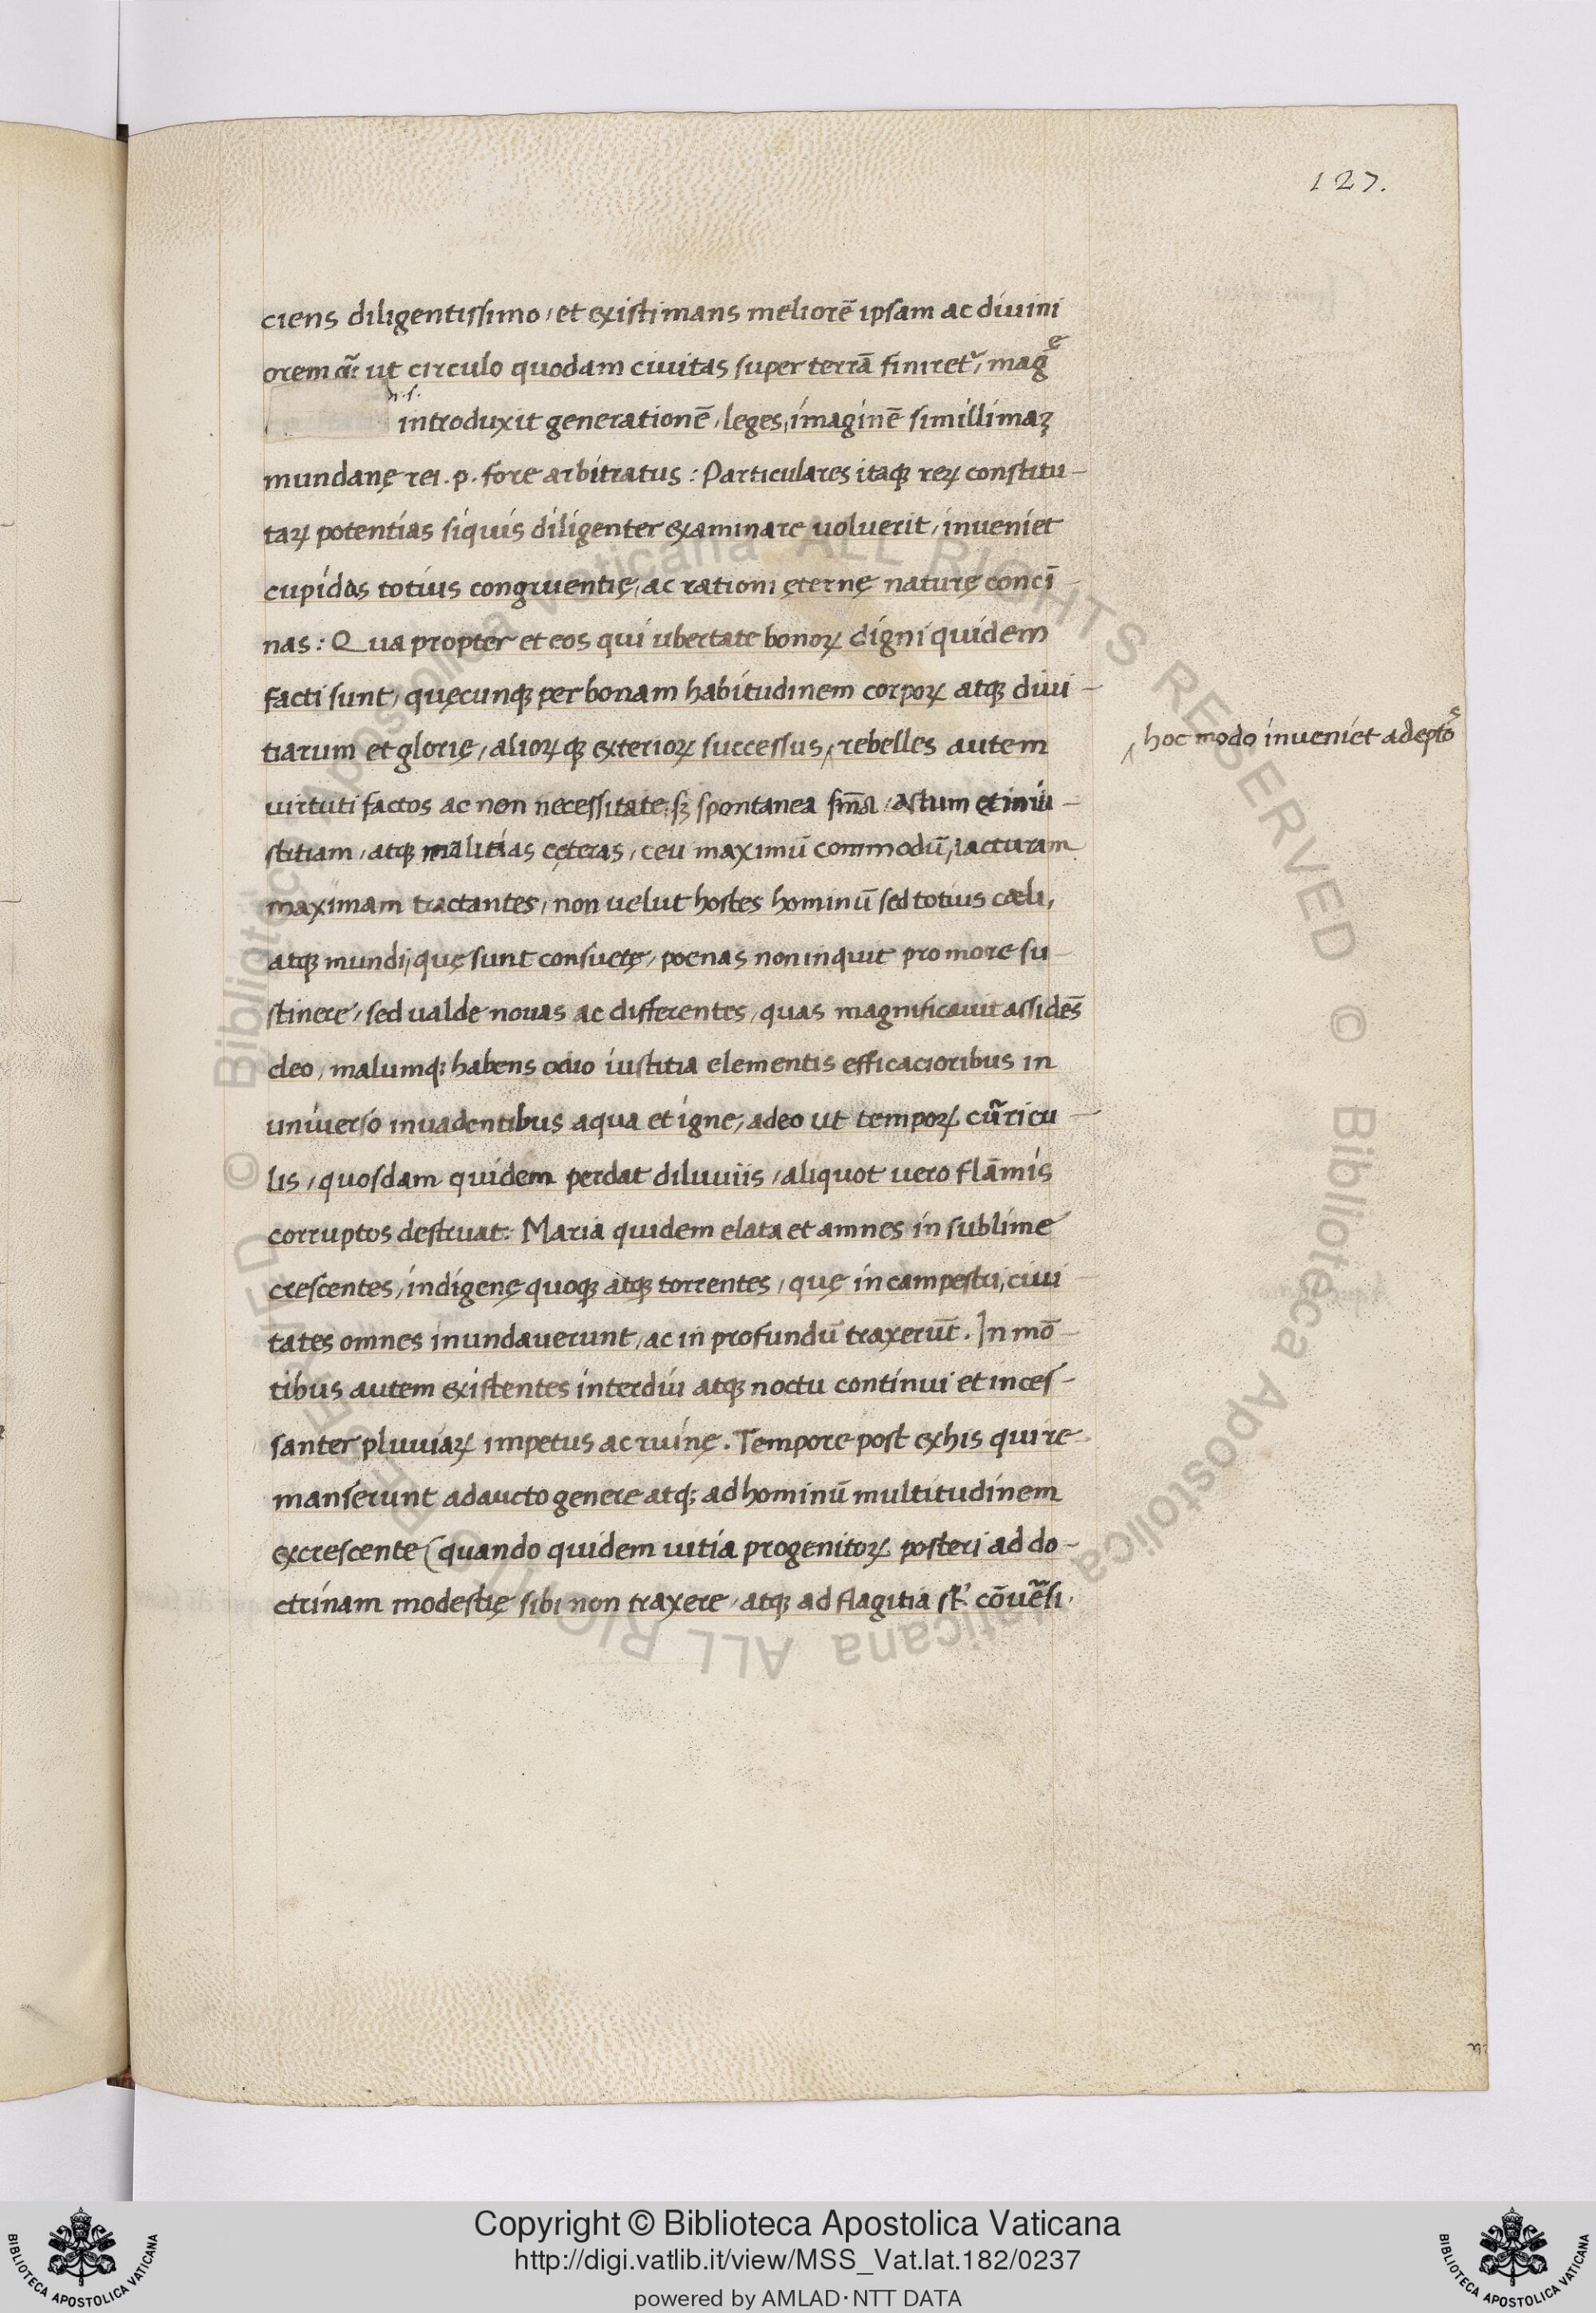 127.
ciens diligentissimo, et existimans meliorē ipsam ac diuini
orem ut circulo quodam ciuitas super terrā finiret, magᵉ
introduxit generationē, leges, imaginē simillimaȝ
mundanę rei .p. fore arbitratus: Particulares itaqȝ reꝝ constitu-
taꝝ potentias siquis diligenter examinare uoluerit, inueniet
cupidas totius congruentię, ac rationi ęternę naturę concī
nas: Qua propter et eos qui ubertate bonoꝝ digni quidem
facti sunt, quęcunqȝ per bonam habitudinem corpoꝝ atqȝ diui-
tiarum et glorię, alioꝝqȝ exterioꝝ successus, ‸ rebelles autem
‸ hoc modo inueniet adeptoˢ
uirtuti factos ac non necessitate, sȝ spontanea astum et iniu-
stitiam, atqȝ malitias cęteras, ceu maximū commodū, iacturam
maximam tractantes, non uelut hostes hominū sed totius cæli,
atqȝ mundi, quę sunt consuetę, poenas non inquit pro more su-
stinere, sed ualde nouas ac differentes, quas magnificauit assidēs
deo, malumqȝ habens odio iustitia elementis efficacioribus in
uniuerso inuadentibus aqua et igne, adeo ut tempoꝝ cur̃ricu-
lis, quosdam quidem perdat diluuiis, aliquot uero flāmis
corruptos destruat: Maria quidem elata et amnes in sublime
crescentes, indigenę quoqȝ atqȝ torrentes, quę in campestri, ciui-
tates omnes inundauerunt, ac in profundū traxerūt. In mō-
tibus autem existentes interdiu atqȝ noctu continui et inces-
santer pluuiaꝝ impetus ac ruinę. Tempore post ex his qui re-
manserunt adaucto genere atqȝ ad hominū multitudinem
excrescente (quando quidem uitia progenitoꝝ posteri ad do-
ctrinam modestię sibi non traxere, atqȝ ad flagitia st̃ cōuer̃si.
© Biblioteca Apostolica Vaticana ALL RIGHTS RESERVED © Biblioteca Apostolica Vaticana ALL RIGHTS RESERVED
Copyright © Biblioteca Apostolica Vaticana
http://digi.vatlib.it/view/MSS_Vat.lat.182/0237
powered by AMLAD·NTT DATA
BIBLIOTECA APOSTOLICA VATICANA
BIBLIOTECA APOSTOLICA VATICANA